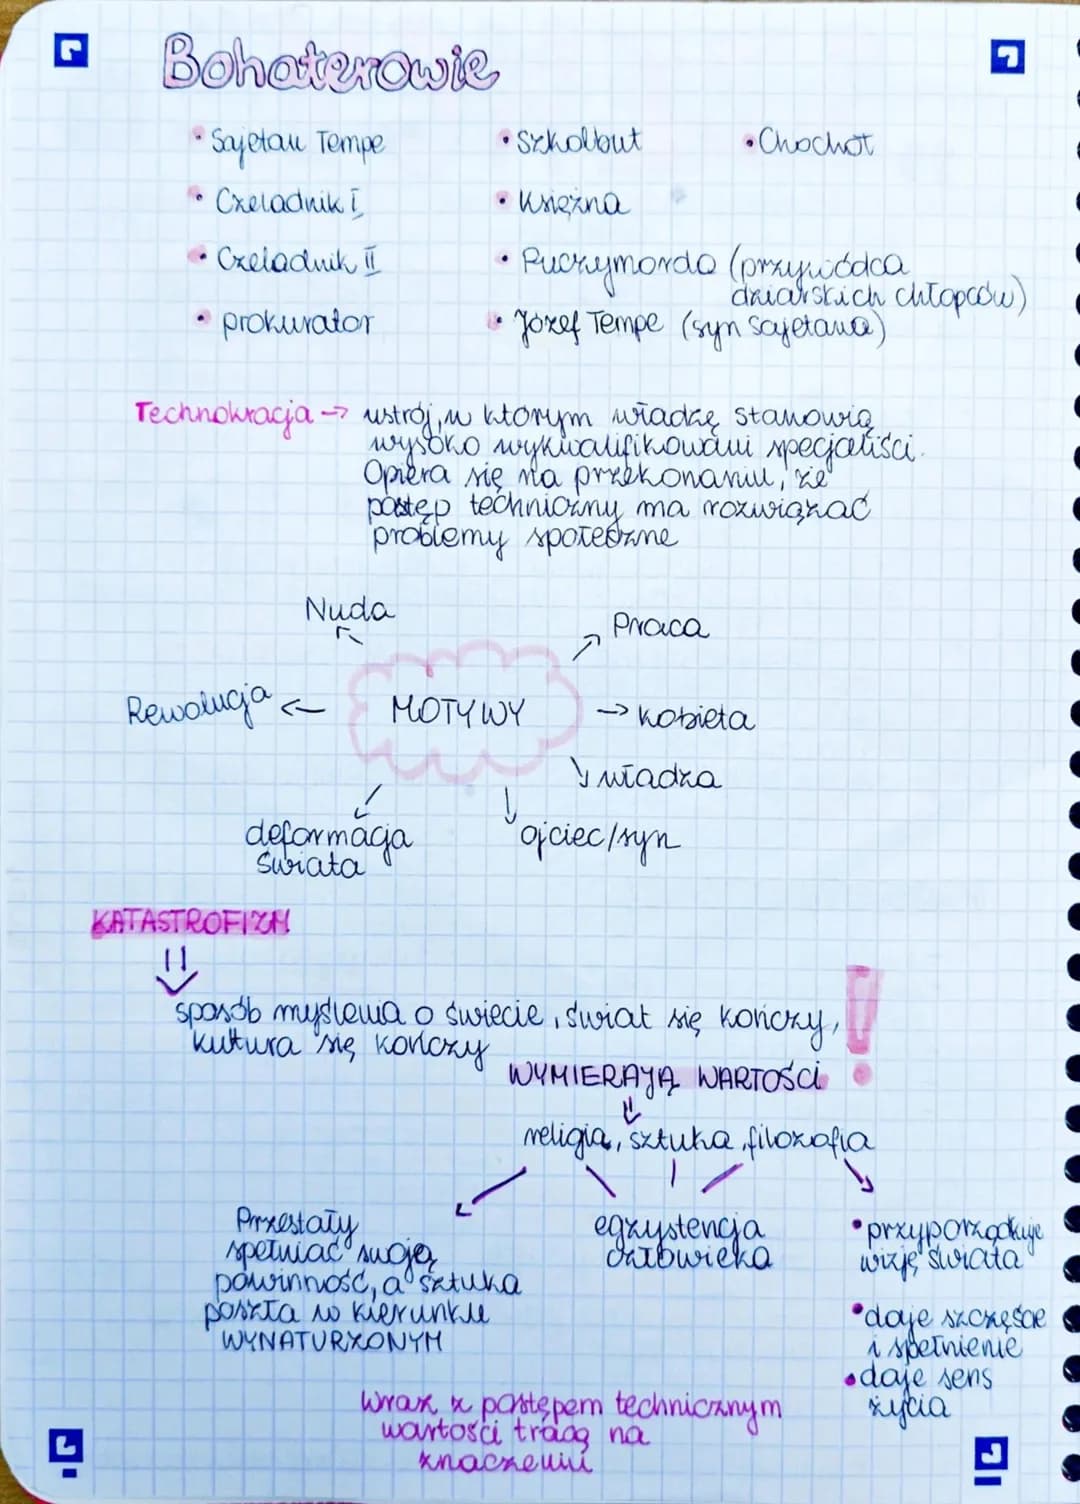 Bohaterowie
• Sajetan Tempe
• Szkolbut
• Chochoł
• Czeladnik I
• Księżna
• Czeladnik II
• Puczymorda (przywódca
dziarskich chłopców)
• prokurator
• Józef Tempe (syn Sajetana)
Technokracja → ustrój, w którym władzę stanowią
wysoko wykwalifikowani specjaliści.
Opiera się na przekonaniu, że
postęp techniczny ma rozwiązać
problemy społeczne
Nuda
Praca
Rewolucja ←
MOTYWY
→ kobieta
władza
deformacja
świata
ojciec/syn
KATASTROFIZM
sposób myślenia o świecie, świat się kończy,
kultura się kończy
WYMIERAJĄ WARTOŚCI !
religia, sztuka, filozofia
Przestały
spełniać swoją
powinność, a sztuka
poszła w kierunku
WYNATURZONYM
egzystencja
człowieka
• przyporządkuje
wizję świata
• daje szczęście
i spełnienie
• daje sens
życia
Wraz z postępem technicznym
wartości tracą na
znaczeniu